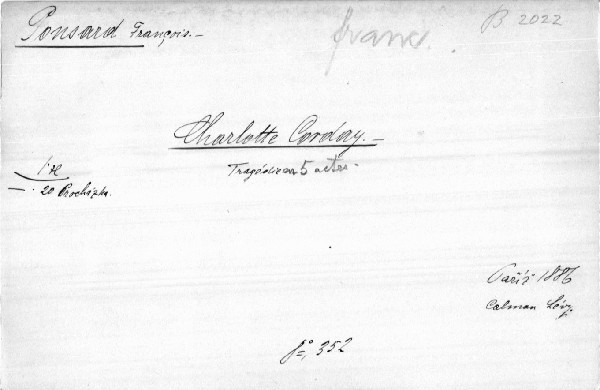 Ponsard François.—
franc.
B 2022
Charlotte Corday.—
Tragédie en 5 actes.
1 K
— . 20 Procházka.
Paříž 1886
Calman Lévy.
8°, 352